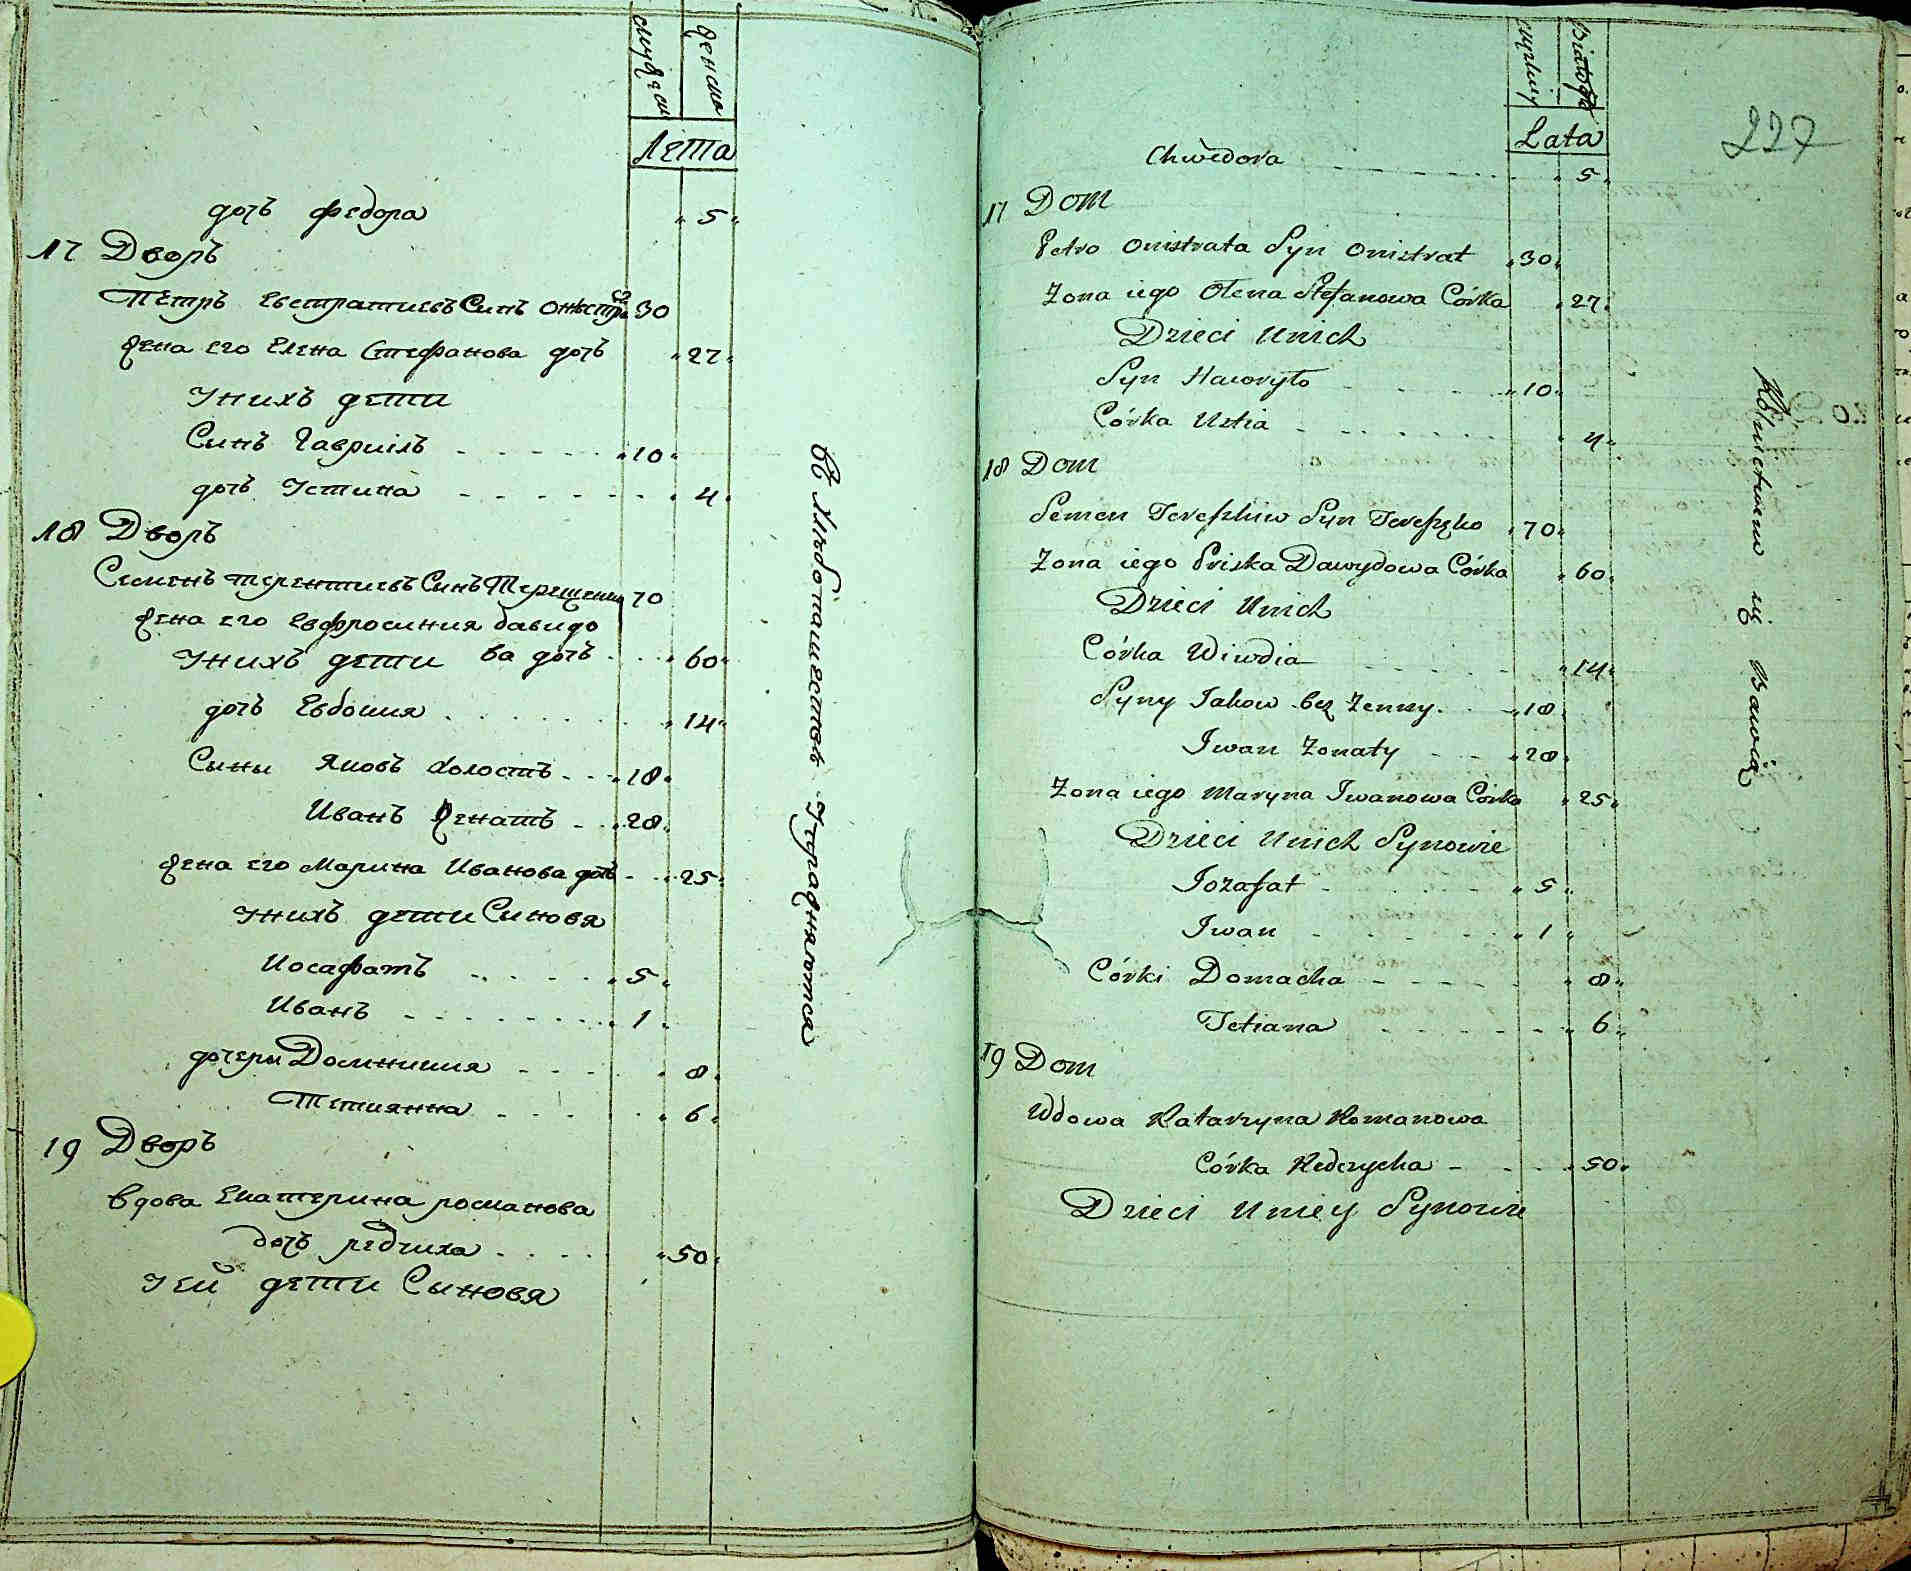 мужеск
женска
Лета
дочь федора „ 5 „
17 Дворъ
Петръ Евстратиевъ Синъ 30
жена его Елена Стефанова дочь „ 27 „
Унихъ дети
Синъ Гавриилъ „ 10 „
дочь Устина „ 4 „
18 Дворъ
Семенъ Терентиевъ Синъ 70
жена его Евфросиния давидо
ва дочь „ 60 „
Унихъ дети
дочь Евдокия „ 14 „
Сыны Яковъ холостъ „ 18 „
Иванъ женатъ „ 28 „
жена его Марина Иванова дочь „ 25 „
Унихъ дети Синовя
Иосафатъ „ 5 „
Иванъ „ 1 „
дочеры Домникия „ 8 „
Тетиянна „ 6 „
19 Дворъ
вдова Екатерина романова
дочь редчиха „ 50 „
Уей дети Сыновя
въ хлѣбопашестве Упражняются
227
Lata
Chwedora „ 5 „
17 Dom
Petro Onistrata Syn Onistrat „ 30 „
Zona iego Olena Stefanowa Córka „ 27 „
Dzieci Unich
Syn Hawryło „ 10 „
Córka Ustia „ 4 „
18 Dom
Semen Tereszkiw Syn Tereszko „ 70 „
Zona iego Priska Dawydowa Córka „ 60 „
Dzieci Unich
Córka Wiwdia „ 14 „
Syny Jakow bez Zenny „ 18 „
Iwan Zonaty „ 28 „
Zona iego Maryna Iwanowa Córka „ 25 „
Dzieci Unich Synowie
Jozafat „ 5 „
Iwan „ 1 „
Córki Domacha „ 8 „
Tetiana „ 6 „
19 Dom
Wdowa Katarzyna Romanowa
Córka Redczycha „ 50 „
Dzieci Uniey Synowie